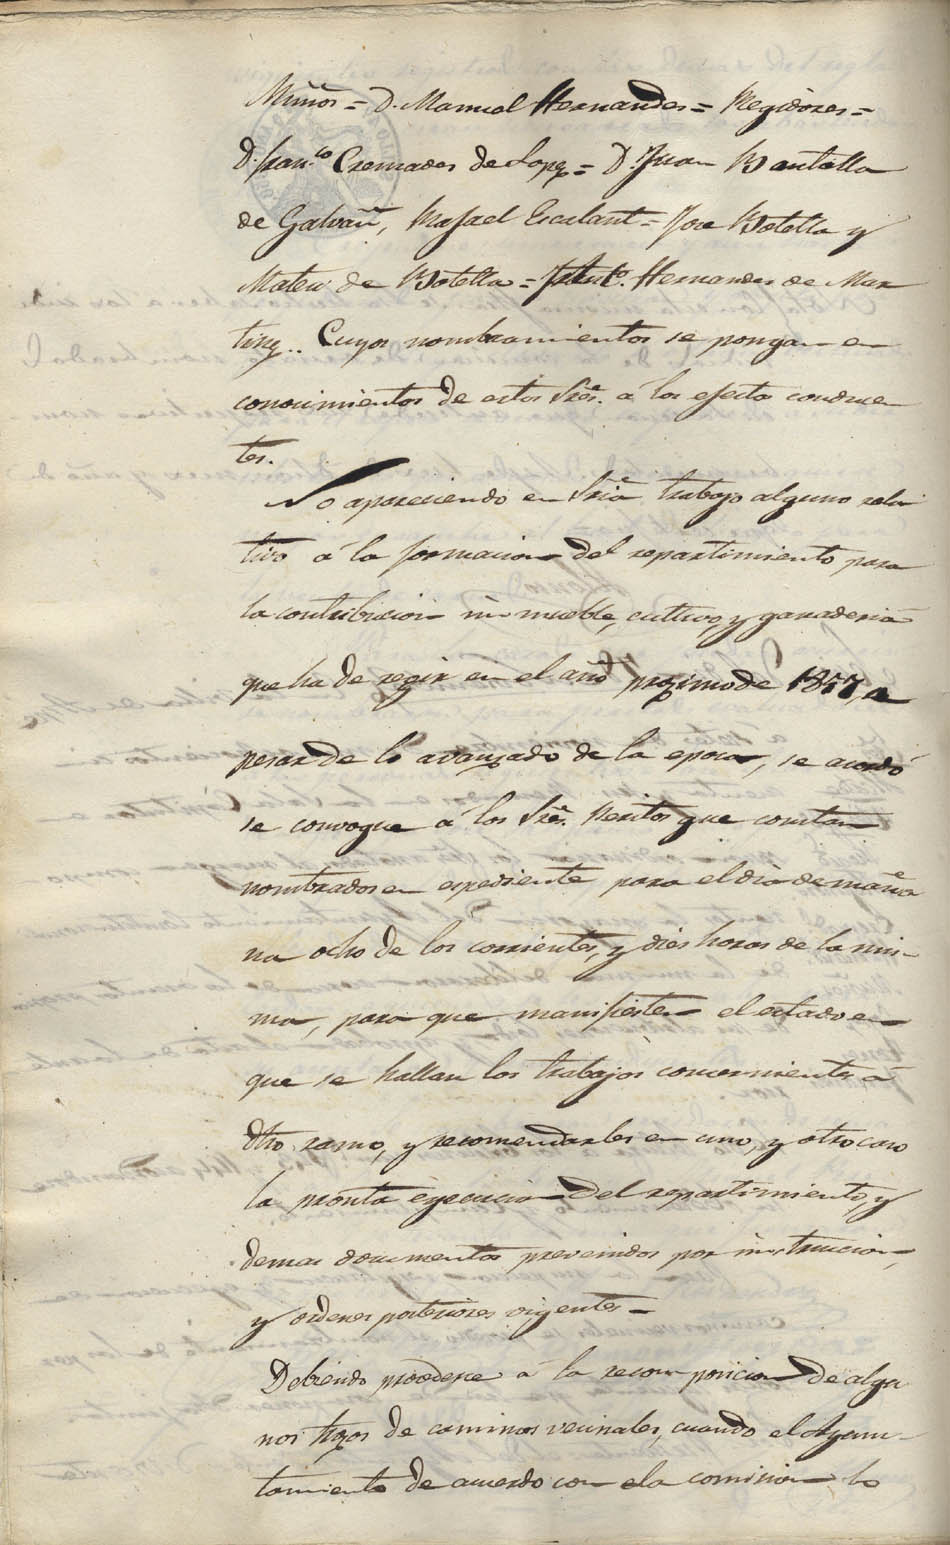 Muños = D. Manuel Hernandes = Regidores =
D. Fran.co Cremades de Lopez = D. Juan Bautella
de Galvañ, Rafael Escalant = Jose Botella y
Mateu de Botella = Hernandes de Mar
tinz.. Cuyos nombramientos se pongan en
conocimientos de estos Sres. á los efectos conducen
tes.
No apareciendo en Sria trabajo alguno rela
tivo á la formacion del repartimiento para
la contribucion in mueble, cultivo, y ganaderia
que ha de regir en el año proximo de 1857, a
pesar de lo avanzado de la epoca, se acordó
se convoque á los Sres. Peritos que constan
nombrados en espediente para el dia de maña
na ocho de los corrientes, y dies horas de la mis-
ma, para que manifiesten el estado en
que se hallan los trabajos concernientes á
dho ramo, y recomendarles en uno, y otro caso
la pronta egecucion del repartimiento, y
demas documentos prevenidos por instruccion,
y ordenes posteriores vigentes =
Debiendo procederse á la recomposicion de algu
nos trozos de caminos vecinales, cuando el Ayun-
tamiento de acuerdo con la comision lo